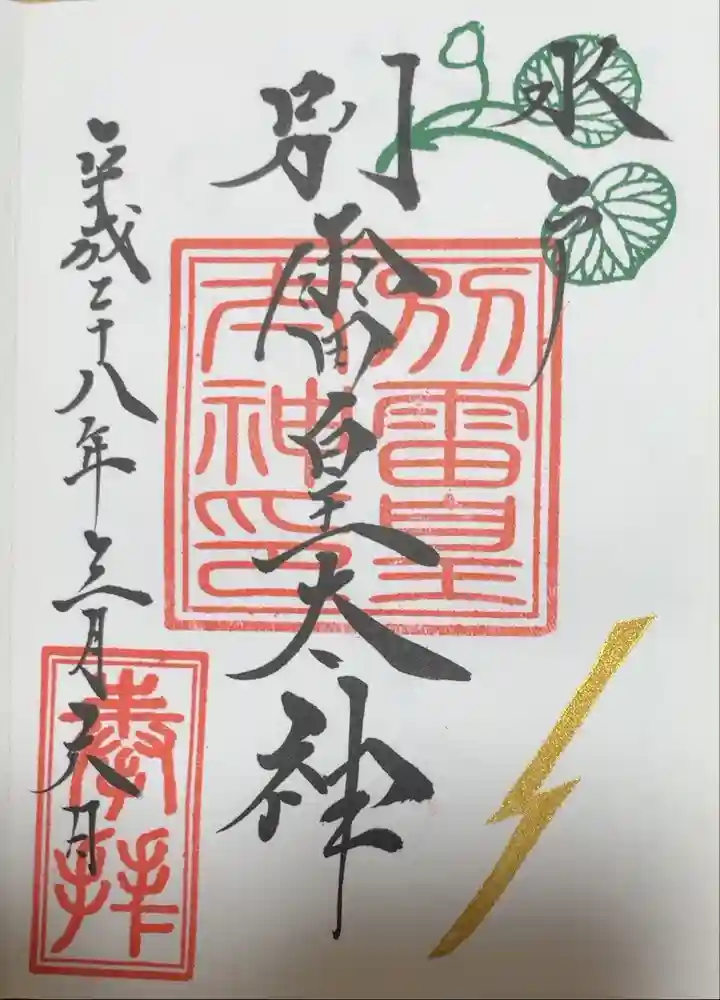 水戸
別雷皇太神
別雷皇
太神印
平成二十八年三月
奉拝